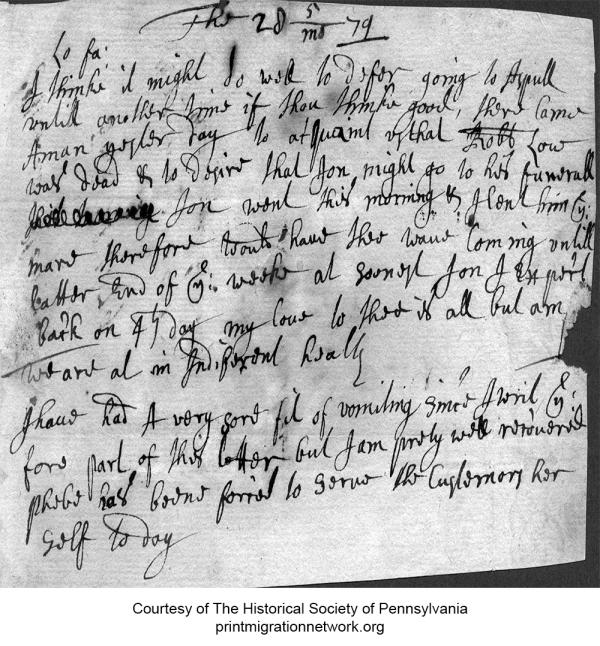 The 28 5/mo 79
Lo fa:
I thinke it might do well to defer going to
untill another time if thou thinke good, there Came
Aman yester day to atquaint us that Robt Low
was dead & to desire that Jon might go to his funerall
Jon went this morning & I lent him ye:
mare therefore would haue thee waue Coming untill
latter End of ye: weeke at soonest Jon I Expect
back on 4th day my loue to thee is all but am
we are al in Indiferent healty
I haue had A very sore fit of vomiting since I writ ye:
fore part of this letter but I am prety well recouered
phebe has beene forced to serve the Customors her
self to day
Courtesy of The Historical Society of Pennsylvania
printmigrationnetwork.org